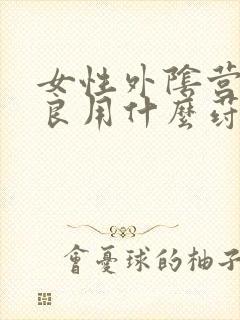 女性外陰营
良用什麼药
會憂球的柚子